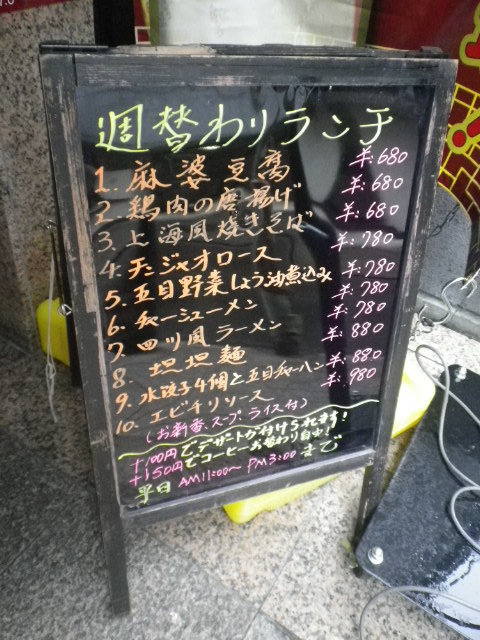 週替わりランチ
1. 麻婆豆腐 ¥:680
2. 鶏肉の唐揚げ ¥:680
3. 上海風焼きそば ¥:680
4. チンジャオロース ¥:780
5. 五目野菜しょう油煮込み ¥:780
6. チャーシューメン ¥:780
7. 四川風ラーメン ¥:780
8. 坦坦麺 ¥:880
9. 水餃子4個と五目チャーハン ¥:880
10. エビチリソース ¥:980
(お新香、スープ、ライス付)
+100円でデザートが付けられます!
+150円でコーヒーお替わり自由!
平日 AM11:00~ PM3:00 まで